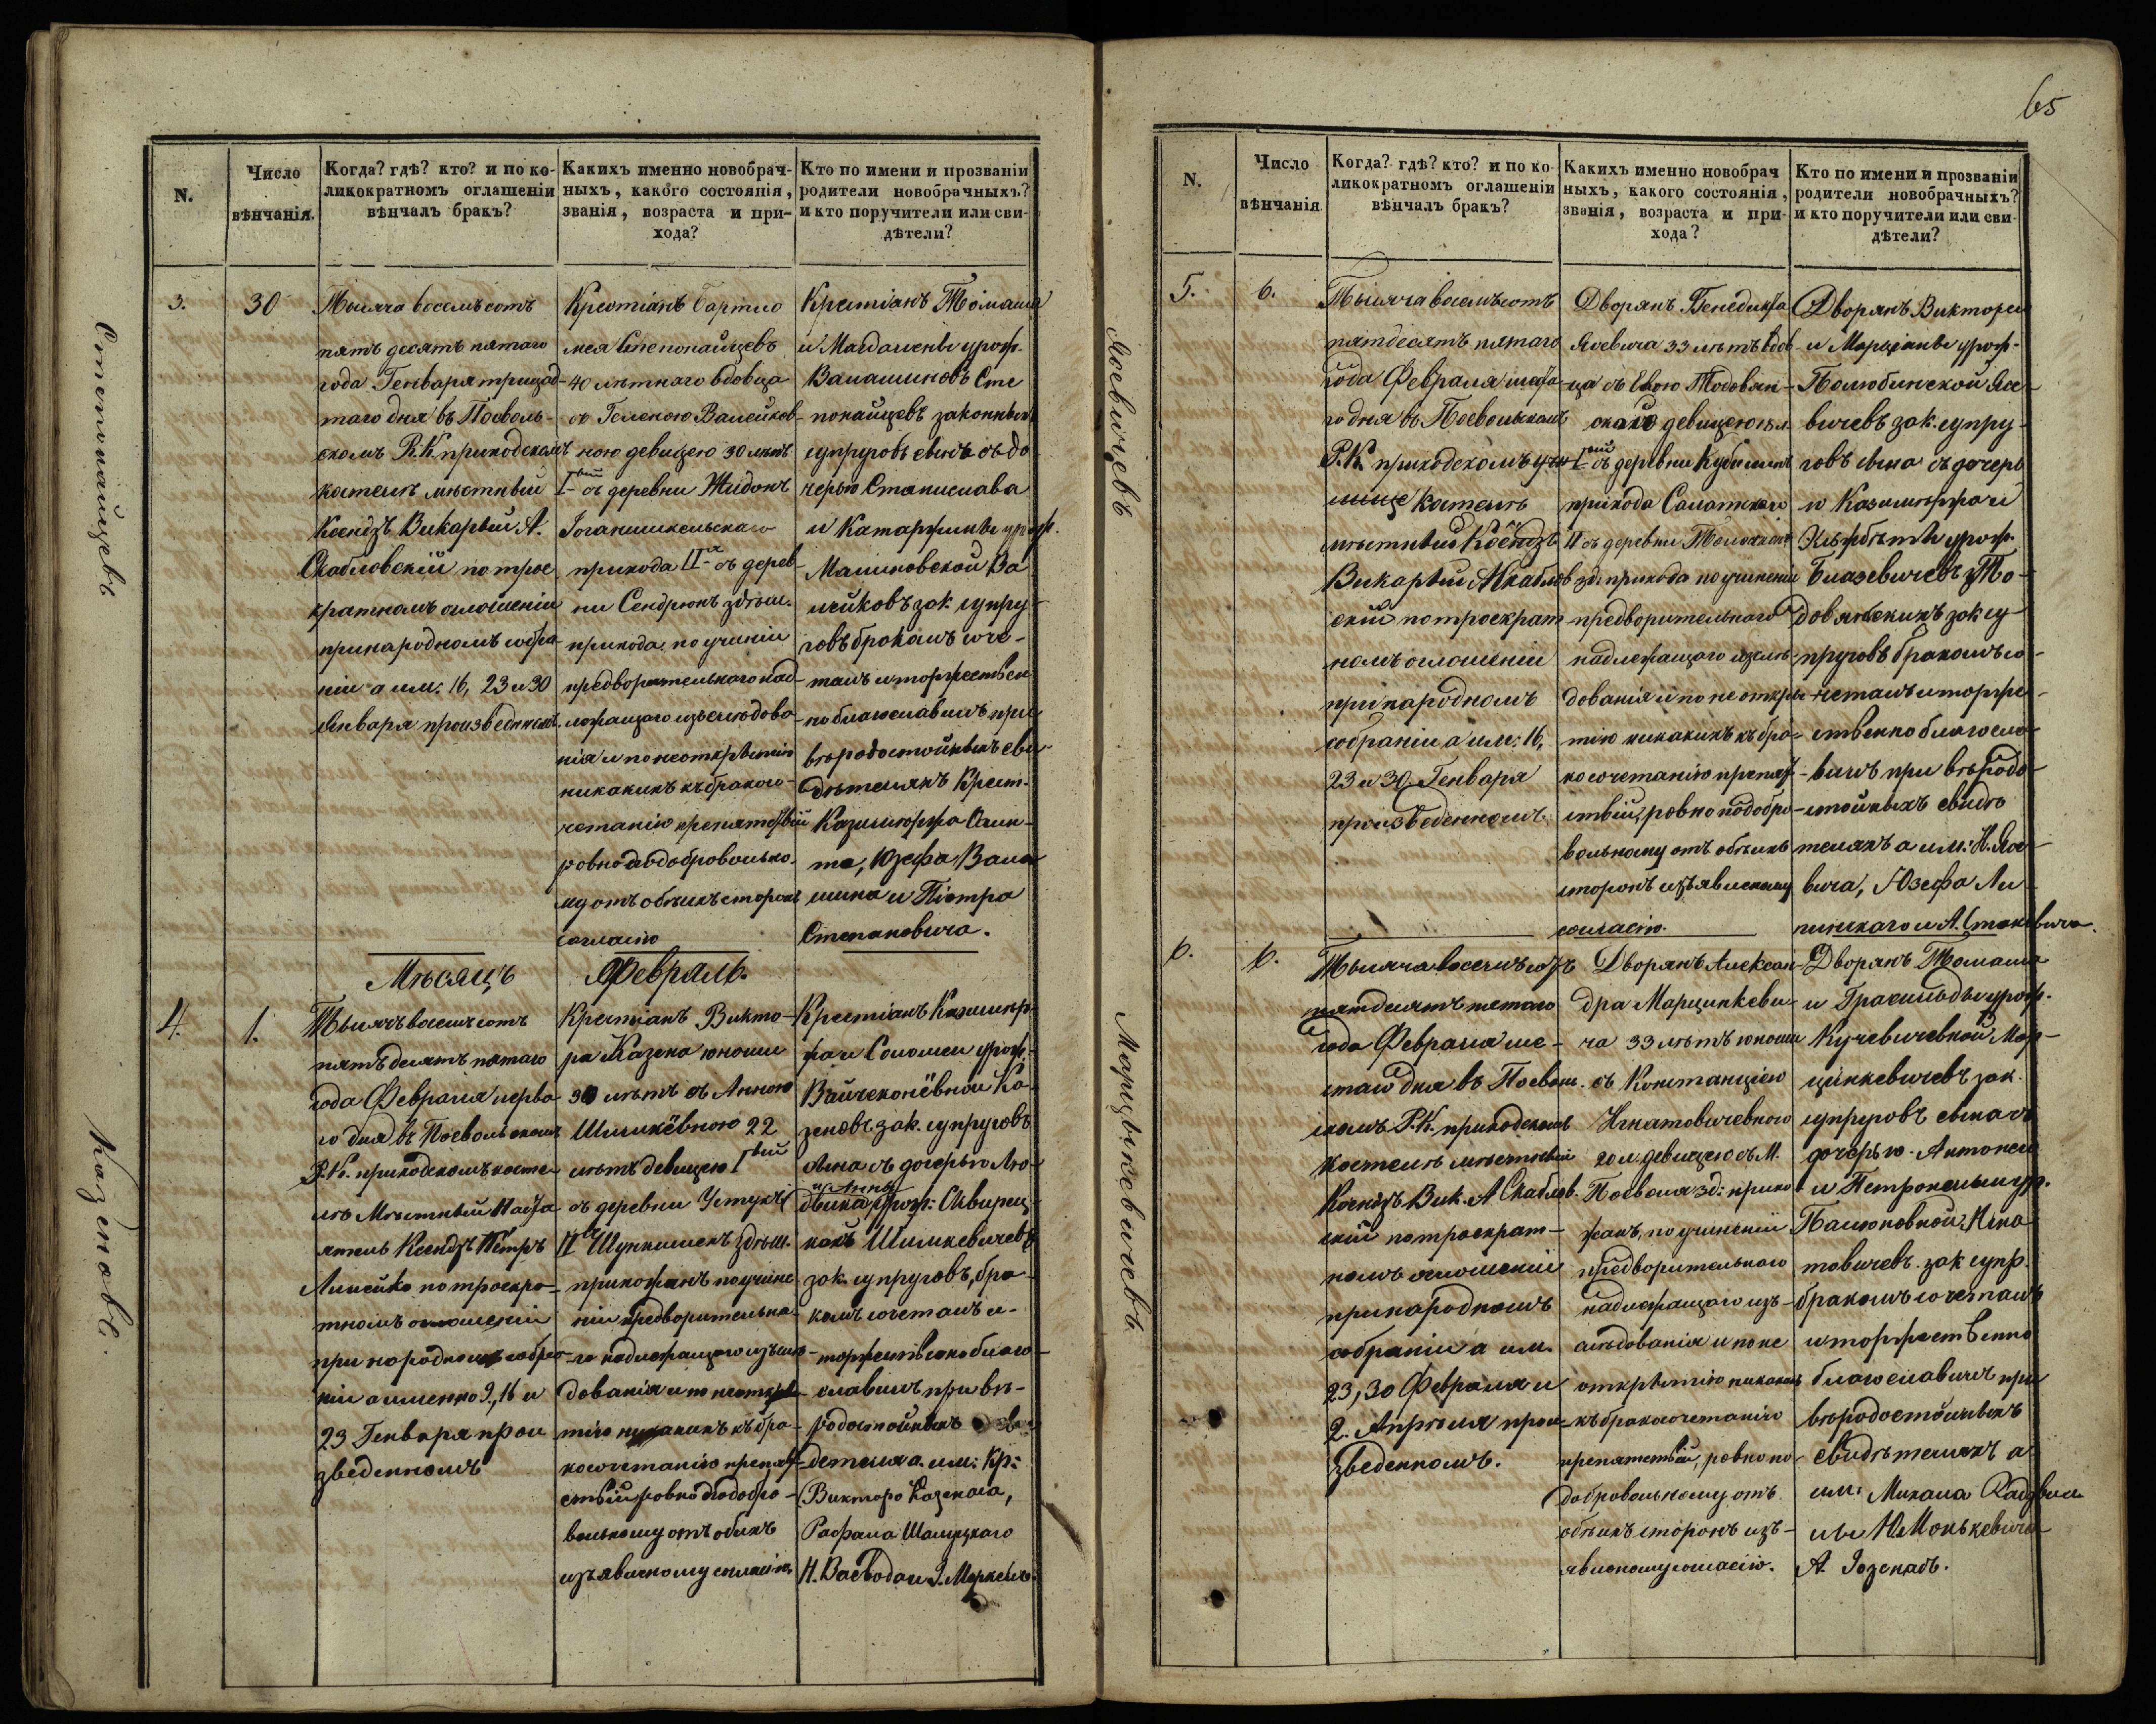 65
N.
Число
вѣнчанія.
Когда? гдѣ? кто? и по ко-
ликократномъ оглашеніи
вѣнчалъ бракъ?
Какихъ именно новобрач-
ныхъ, какого состоянія,
званія, возраста и при-
хода?
Кто по имени и прозваніи
родители новобрачныхъ?
и кто поручители или сви-
дѣтели?
3.
30
Тысяча восемьсотъ
пятъ десятъ пятаго
года Генваря тридца-
таго дня въ Посволь-
скомъ Р. К. приходскомъ
костелѣ мѣстный
Ксендзъ Викарый А.
Скабловскій по трое
кратномъ оглошеніи
принародномъ собра-
ніи а им: 16, 23 и 30
Января произведенномъ.
Крестіянъ Бартло
мея Степонайцевъ
40 лѣтнаго вдовца
съ Геленою Валейков-
ною девицею 30 лѣтъ
I-вый съ деревни Жидонъ
Іоганишкельскаго
прихода II-я съ дерев-
ни Сендрюнъ здѣш.
прихода, по учиніи
предворительнаго над-
лежащаго изъслѣдова-
нія и по неоткрытію
никакихъ къ бракосо-
четанію препятствій
ровно и добровольно-
му отъ обѣихъ сторонъ
согласію
Крестіянъ Томаша
и Магдалены урож.
Валашиновъ Сте
понайцевъ законныхъ
супруговъ сынъ съ до-
черью Станислава
и Катаржины урож.
Малиновской Ва
лейковъ зак. супру-
говъ бракомъ соче-
талъ и торжествен
но благославилъ при
вѣродостойныхъ сви-
дѣтеляхъ Крест.
Казимѣржа Олин-
та, Юзефа Вала
шина и Піотра
Степановича.
Степонайцевъ
Мѣсяцъ Февраль.
4.
1.
Тысячъ восемьсотъ
пятъ десятъ пятаго
года Февраля перва-
го дня въ Посвольскомъ
Р. К. приходскомъ косте-
лѣ Мѣстный Насто
ятель Ксендзъ Пётръ
Линейко по троекра-
тномъ оглошеніи
при народномъ собра-
ніи а именно 9, 16 и
23 Генваря прои
зведенномъ
Крестіянъ Викто-
ра Казена юноши
30 лѣтъ съ Анною
Шимкёвною 22
лѣтъ девицею I-вый
съ деревни Устукъ
II-я Шункишекъ здѣш.
прихожанъ по учине
ніи предворительна-
го надлежащаго изъслѣ-
дованія и по неоткры-
тію никакихъ къ бра-
косочетанію препят-
ствій ровно и добро-
вольному отъ обѣихъ
изъявленному согласію
Крестіянъ Казимѣр-
жа и Соломеи урож.
Вайчеконёвной Ка-
зеновъ зак. супруговъ
сына съ дочерью Лю-
двика и Анны урож: Сквирец-
кокъ Шимкевичевъ
зак. супруговъ, бра-
комъ сочеталъ и
торжественно благо-
славилъ при вѣ-
родостойныхъ сви-
детеля а. им: Кр:
Виктора Казенаса,
Рафала Шалуцкаго
Н. Ваевода и І. Меркель.
Казеновъ.
N.
Число
вѣнчанія.
Когда? гдѣ? кто? и по ко-
ликократномъ оглашеніи
вѣнчалъ бракъ?
Какихъ именно новобрач
ныхъ, какого состоянія,
званія, возраста и при-
хода?
Кто по имени и прозваніи
родители новобрачныхъ?
и кто поручители или сви-
дѣтели?
5.
6.
Тысяча восемьсотъ
пятдесятъ пятаго
года Февраля шеста-
го дня въ Посвольскомъ
Р. К. приходскомъ
костелѣ
мѣстный Ксендзъ
Викарый А. Скаблов
скій по троекрат-
номъ оглошеніи
при народномъ
собраніи а им: 16,
23 и 30 Генваря
произведенномъ.
Дворянъ Бенедикта
Ясевича 33 лѣтъ вдов-
ца съ Евою Товян-
скаю девицею
I-вый съ деревни Кубилюнъ
прихода Салатскаго
II съ деревни
зд. прихода по учиненіи
предворительнаго
надлежащаго изслѣ-
дованія и по неоткры-
тію никакихъ къ бра-
косочетанію препят-
ствій, ровно и добро-
вольному отъ обѣихъ
сторонъ изъявленному
согласію.
Дворянъ Викторія
и Марціаны урож-
Полюбинской Ясе-
вичевъ зак. супру-
говъ сына съ дочерь
ю Казимѣржа и
Эльжбѣты урож.
Блазевичевъ То-
довянскихъ зак су-
пруговъ бракомъ со-
четалъ и торже-
ственно благосло-
вилъ при вѣродо-
стойныхъ свидѣ
теляхъ а им: И. Ясе
вича, Юзефа Ли
пинскаго и А. Станкевича.
Ясевичевъ
6.
6.
Тысяча восемьсотъ
пятдесятъ пятаго
года Февраля ше-
стаго дня въ Посволь-
скомъ Р. К. приходскомъ
костелѣ мѣстный
Ксендзъ Вик. А. Скаблов-
скій по троекрат-
номъ оглошеніи
принародномъ
собраніи а им.
23, 30 Февраля и
2. Апрѣля прои-
зведенномъ.
Дворянъ Алексан-
дра Марцинкеви-
ча 33 лѣтъ юноши
съ Констанціею
Игнатовичевною
20 л. девицею съ М.
Посволя зд: прихо
жанъ, по учиненіи
предворительнаго
надлежащаго изъ-
слѣдованія и по не
открытію никакихъ
къ бракосочетанію
препятствій, ровно по-
добровольному отъ
обѣихъ сторонъ изъ-
явленному согласію.
Дворянъ Томаша
и Грасильды урож.
Кучевичевной Мар-
цинкевичевъ зак.
супруговъ сына съ
дочерью Антонея
и Петронелы ур.
Палюновной Игна
товичевъ. зак супр.
бракомъ сочеталъ
и торжественно
благославилъ при
вѣродостойныхъ
свидѣтеляхъ а
им. Михала Радзви
лы Ю. Монькевича
А. Іозенасъ.
Марцинкевичевъ